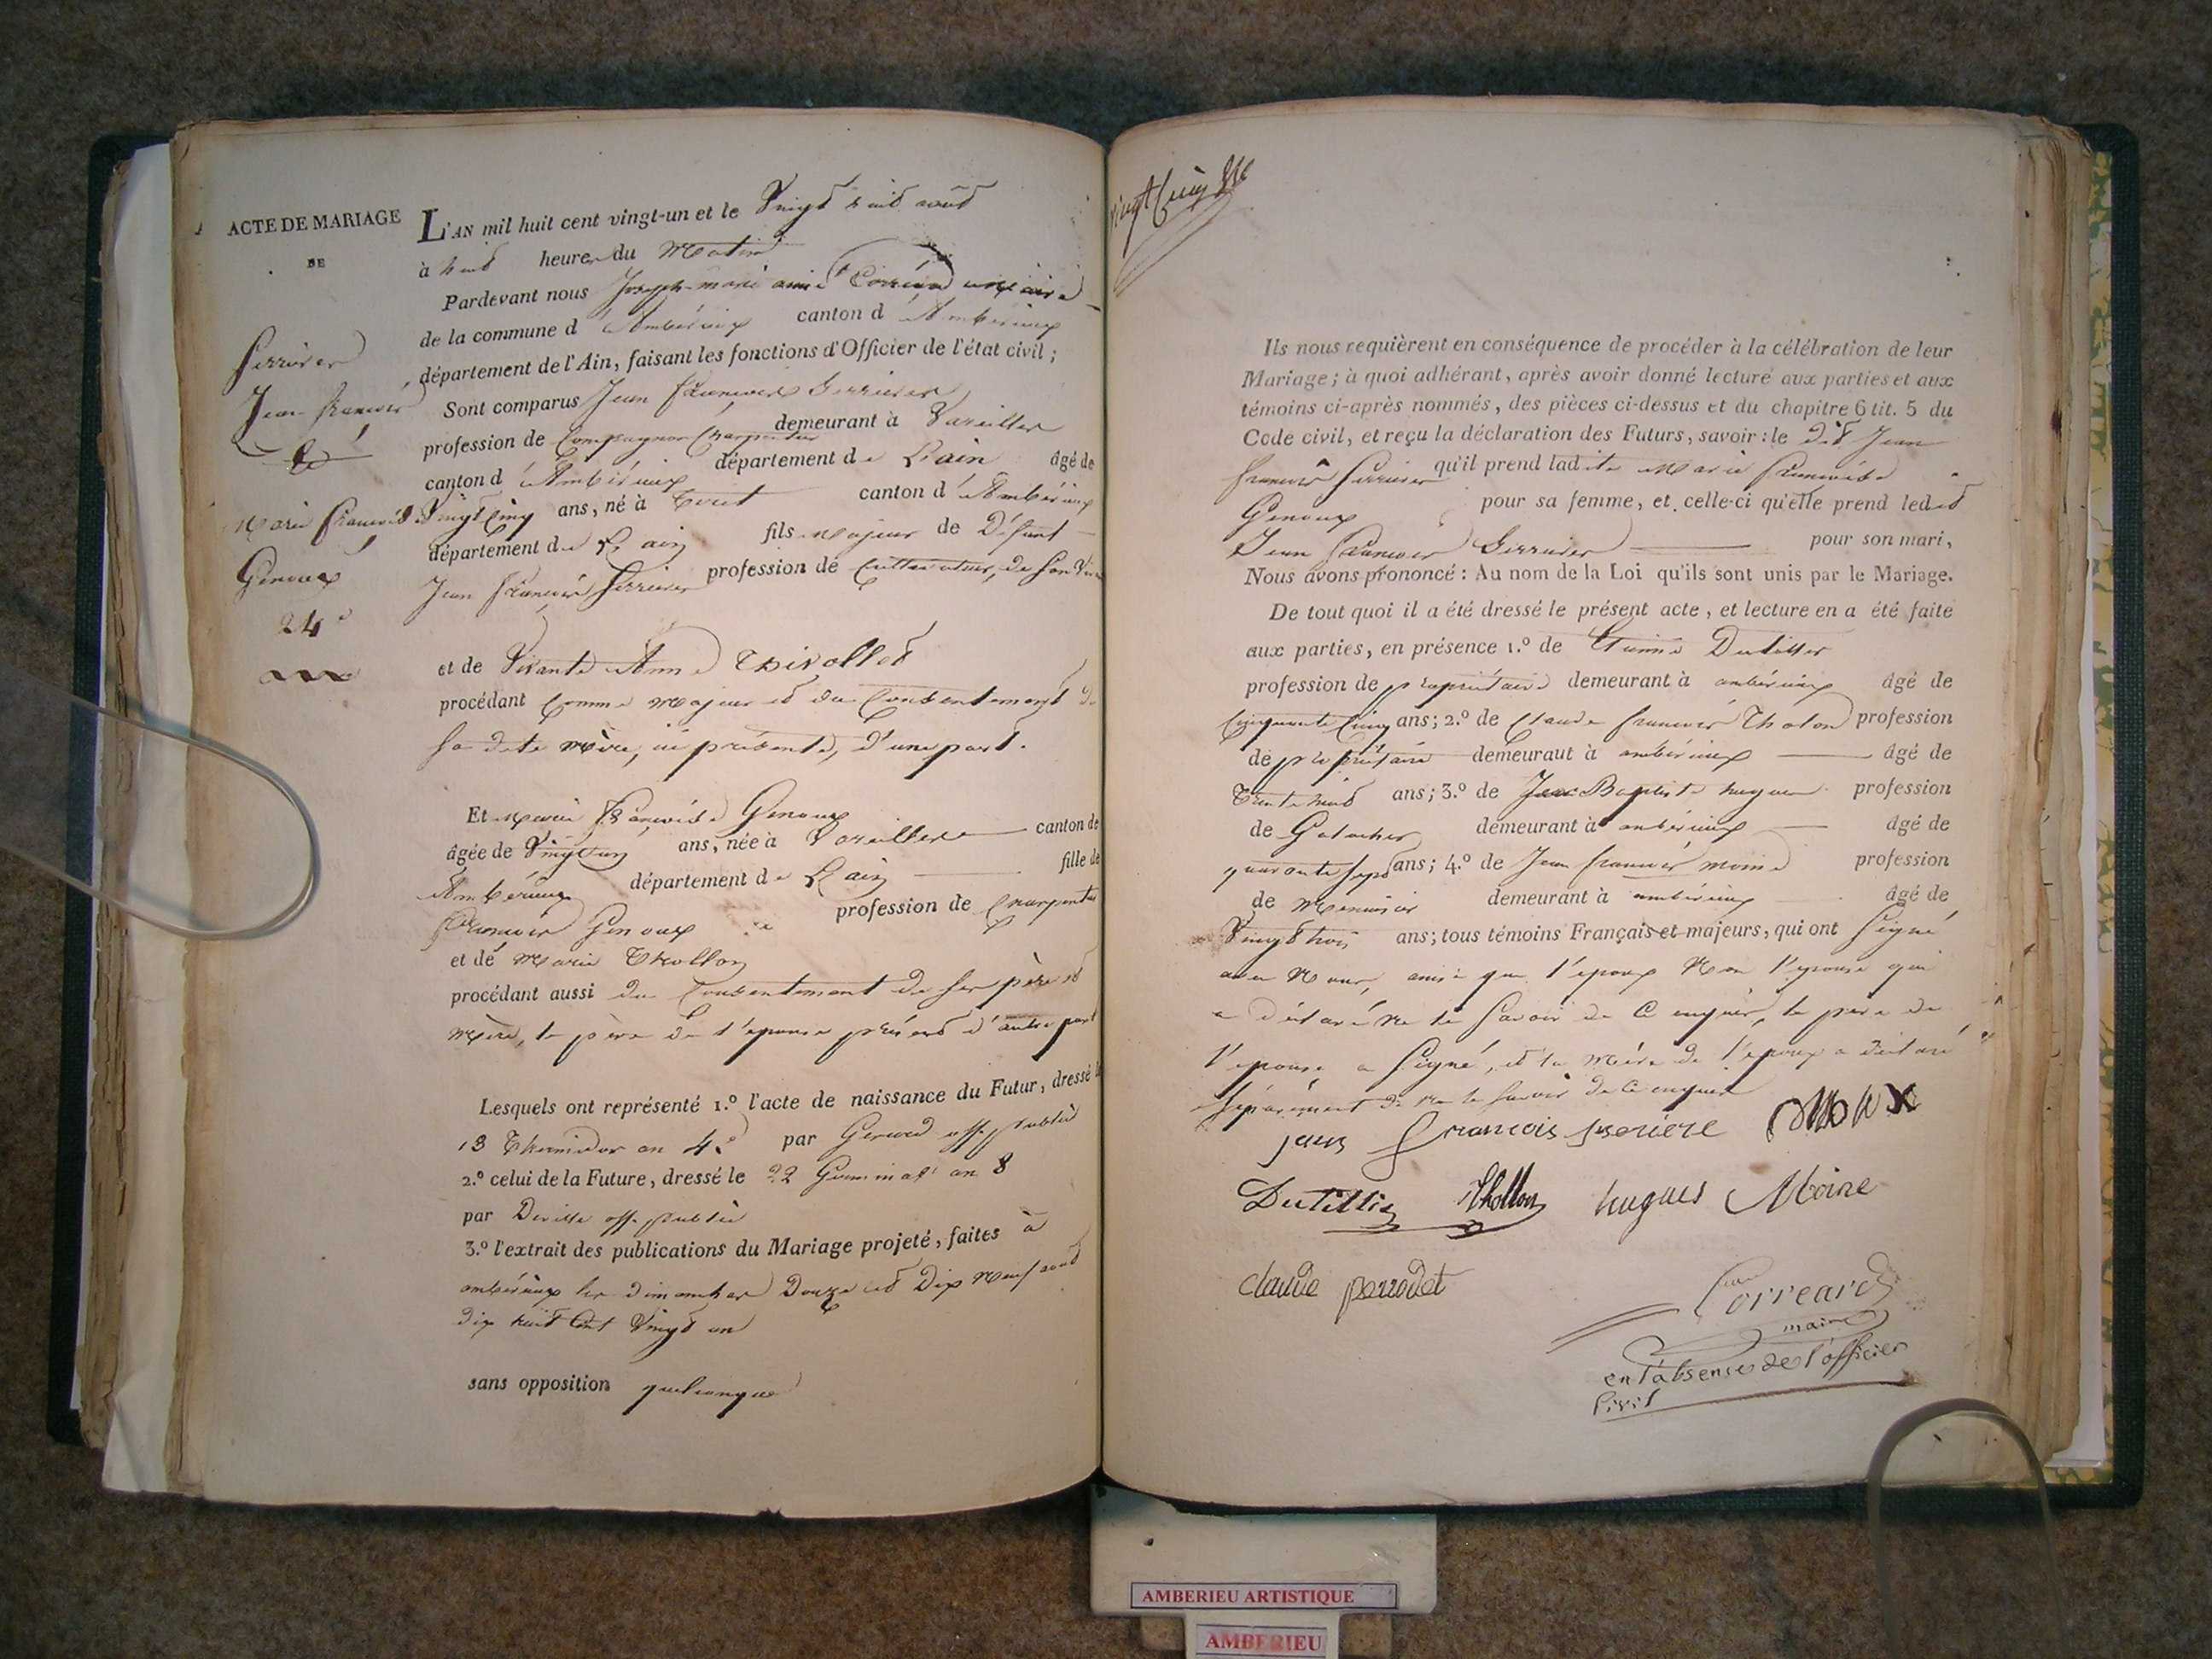 ACTE DE MARIAGE
DE
Jean françois
et
Marie françoise
Genoux
24e
L'AN mil huit cent vingt-un et le Vingt huit août
à huit heures du Matin
Pardevant nous Joseph-marie aimé Corréard maire
de la commune d'Ambérieux canton d'Ambérieux
département de l'Ain, faisant les fonctions d'Officier de l'état civil;
Sont comparus Jean François
profession de Compagnon Charpentier demeurant à Vareilles
canton d'Ambérieux département de L'ain âgé de
Vingt Cinq ans, né à canton d'Ambérieux
département de L'ain fils majeur de Défunt
Jean François profession de Cultivateur, de Son Viv
et de Vivante Anne Thivollet
procédant Comme Majeur et du Consentement de
Sa dite mère, ici présente, d'une part.
Et Marie Françoise Genoux
âgée de Vingt un ans, née à Vareilles canton de
Ambérieux département de L'ain fille de
François Genoux profession de Charpentier
et de Marie Thollon
procédant aussi du Consentement de Ses père et
Mère, le père de l'épouse présent d'autre part
Lesquels ont représenté 1.º l'acte de naissance du Futur, dressé le
13 Thermidor an 4e par off. public
2.º celui de la Future, dressé le 22 Germinal an 8
par Deville off. public
3.º l'extrait des publications du Mariage projeté, faites à
ambérieux les dimanches Douze et Dix Neuf août
dix huit Cent Vingt un
sans opposition quelconque
vingt cinq
Ils nous requièrent en conséquence de procéder à la célébration de leur
Mariage; à quoi adhérant, après avoir donné lecture aux parties et aux
témoins ci-après nommés, des pièces ci-dessus et du chapitre 6 tit. 5 du
Code civil, et reçu la déclaration des Futurs, savoir: le dit Jean
françois qu'il prend ladite Marie Françoise
Genoux pour sa femme, et celle-ci qu'elle prend ledit
Jean François pour son mari,
Nous avons prononcé: Au nom de la Loi qu'ils sont unis par le Mariage.
De tout quoi il a été dressé le présent acte, et lecture en a été faite
aux parties, en présence 1.º de Etienne Dutillier
profession de propriétaire demeurant à ambérieux âgé de
Cinquante Cinq ans; 2.º de Claude françois Tholon profession
de propriétaire demeuraut à ambérieux âgé de
Trente huit ans; 3.º de Jean Baptiste hugues profession
de demeurant à ambérieux âgé de
quarante Sept ans; 4.º de Jean françois moine profession
de Menuisier demeurant à ambérieux âgé de
Vingt trois ans; tous témoins Français et majeurs, qui ont Signé
avec Nous, ainsi que l'époux Non l'épouse qui
a déclaré Ne le Savoir de Ce enquise, le père de
l'épouse a Signé, et la mère de l'époux a déclaré
Séparément de Ne le Savoir de Ce enquise
jean francois
Dutillier Thollon hugues Moine
claude perrodet
Corréard
maire
en l'absence de l'officier
Civil
AMBERIEU ARTISTIQUE
AMBERIEU